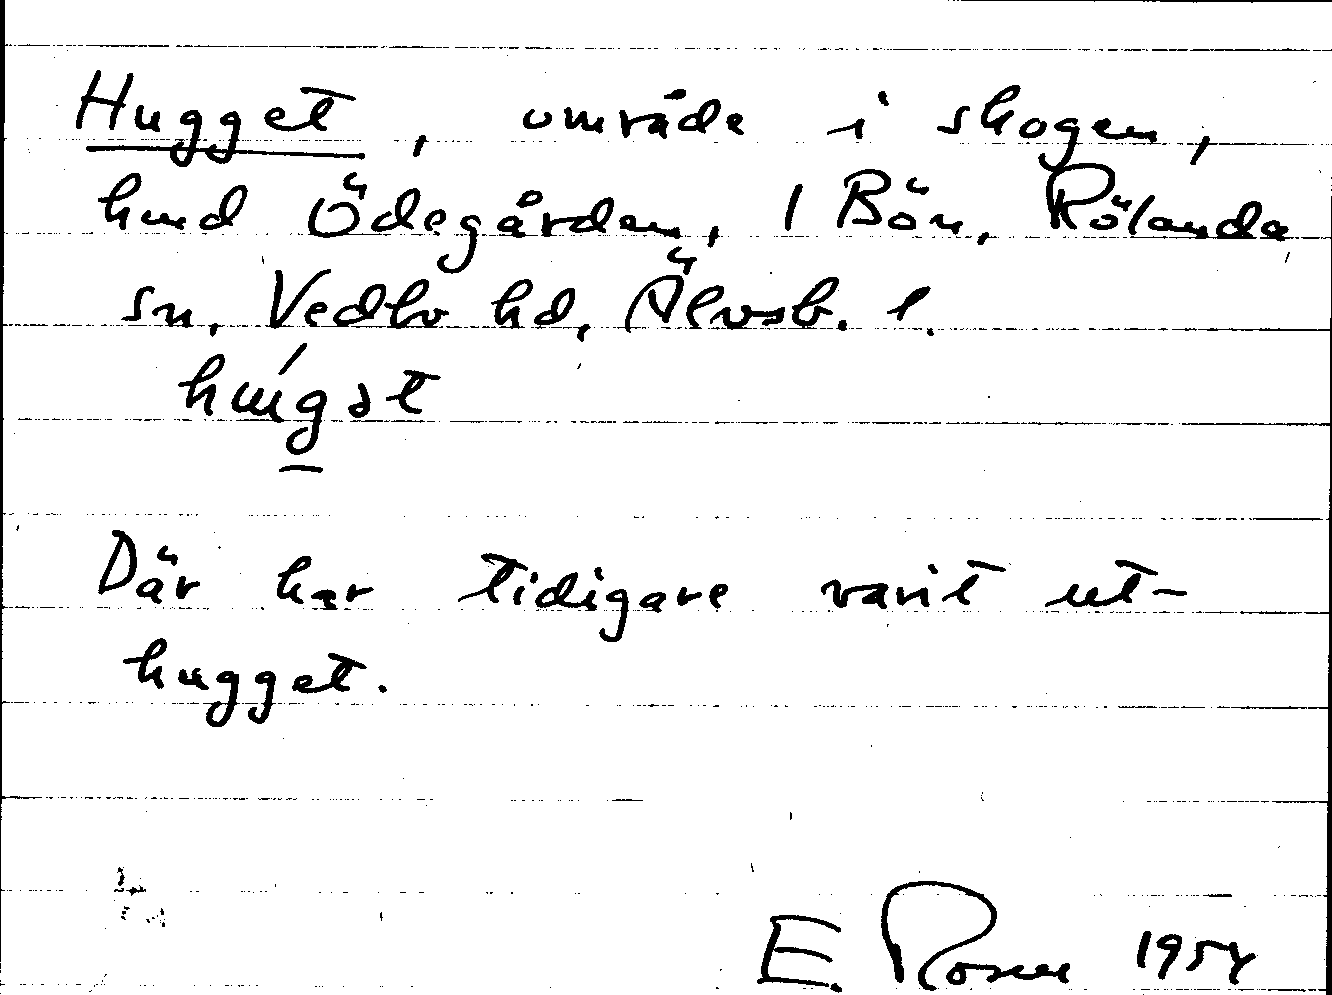 Hugget, område i skogen,
hmd Ödegården, 1 Bön, Rölanda
sn, Vedbo hd, Älvsb. l.
Där har tidigare varit ut-
hugget.
E. Rosen 1954